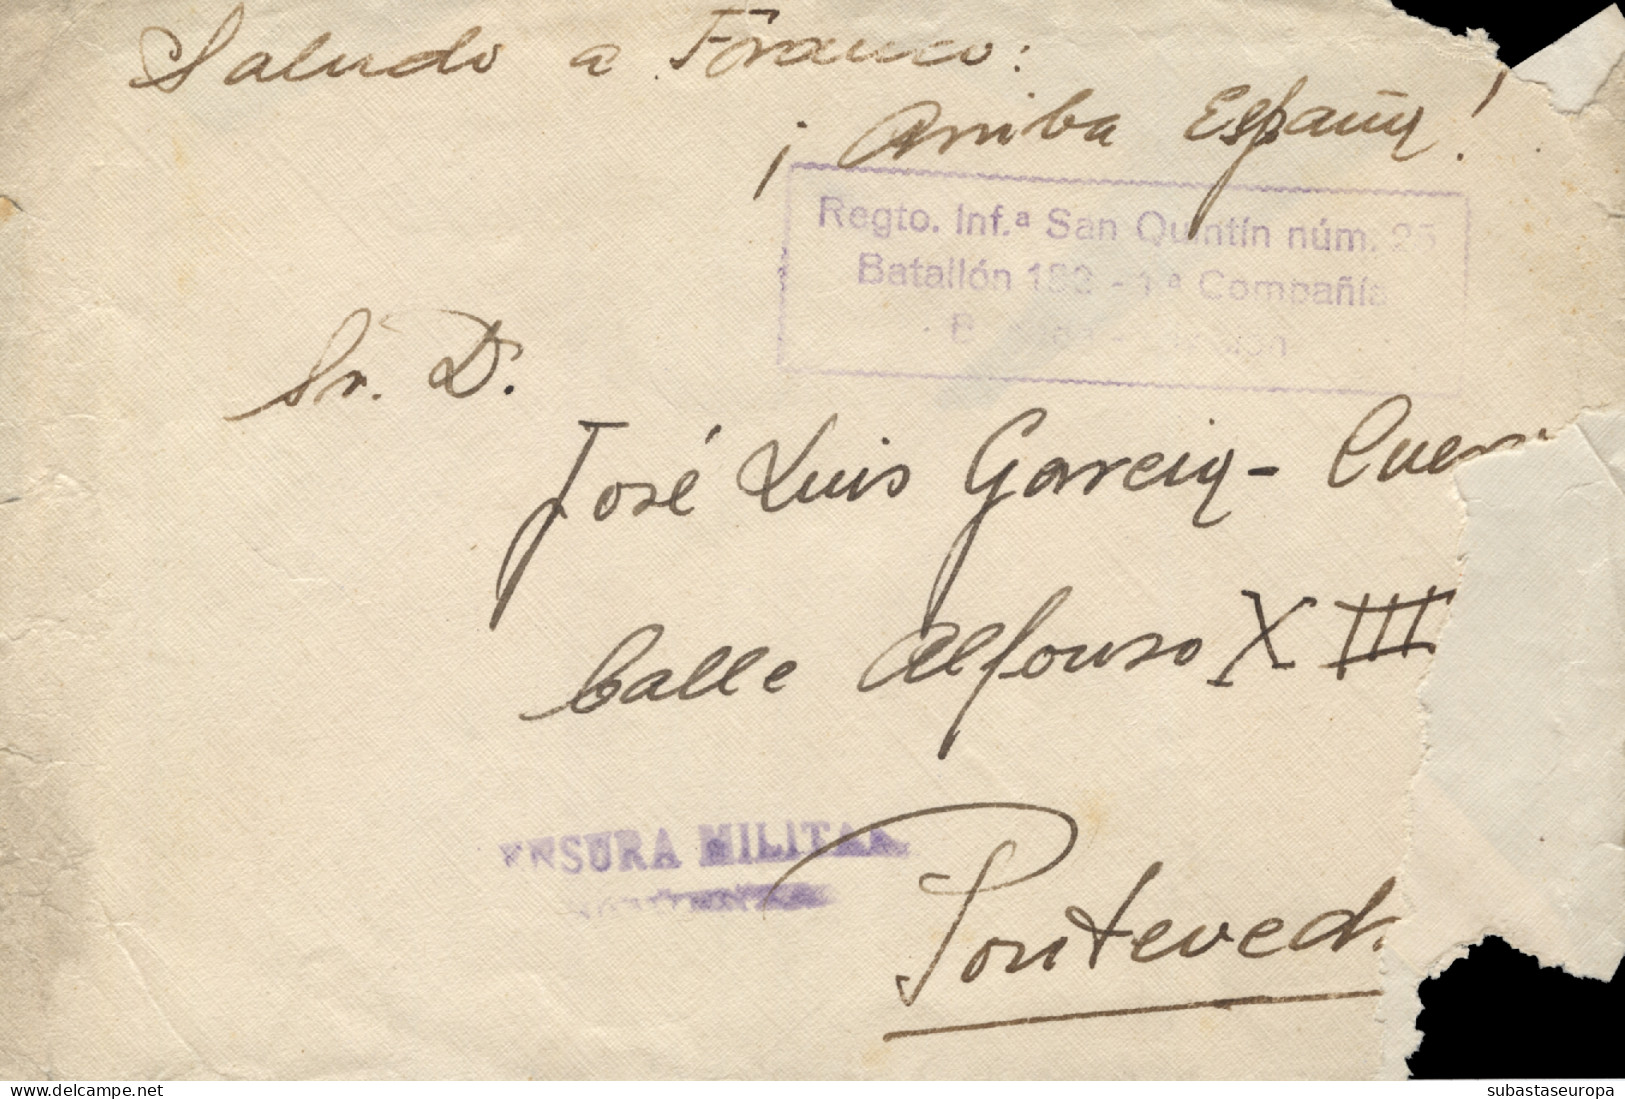 Saludo a Franco:
¡Arriba España!
Regto. Inf.ª San Quintín núm. 25
Batallón - 1ª Compañía
Sr. D.
José Luis Garcia-
Calle Alfonso XIII
ENSURA MILITAR
Pontevedr
delcampe.net
subastaseuropa